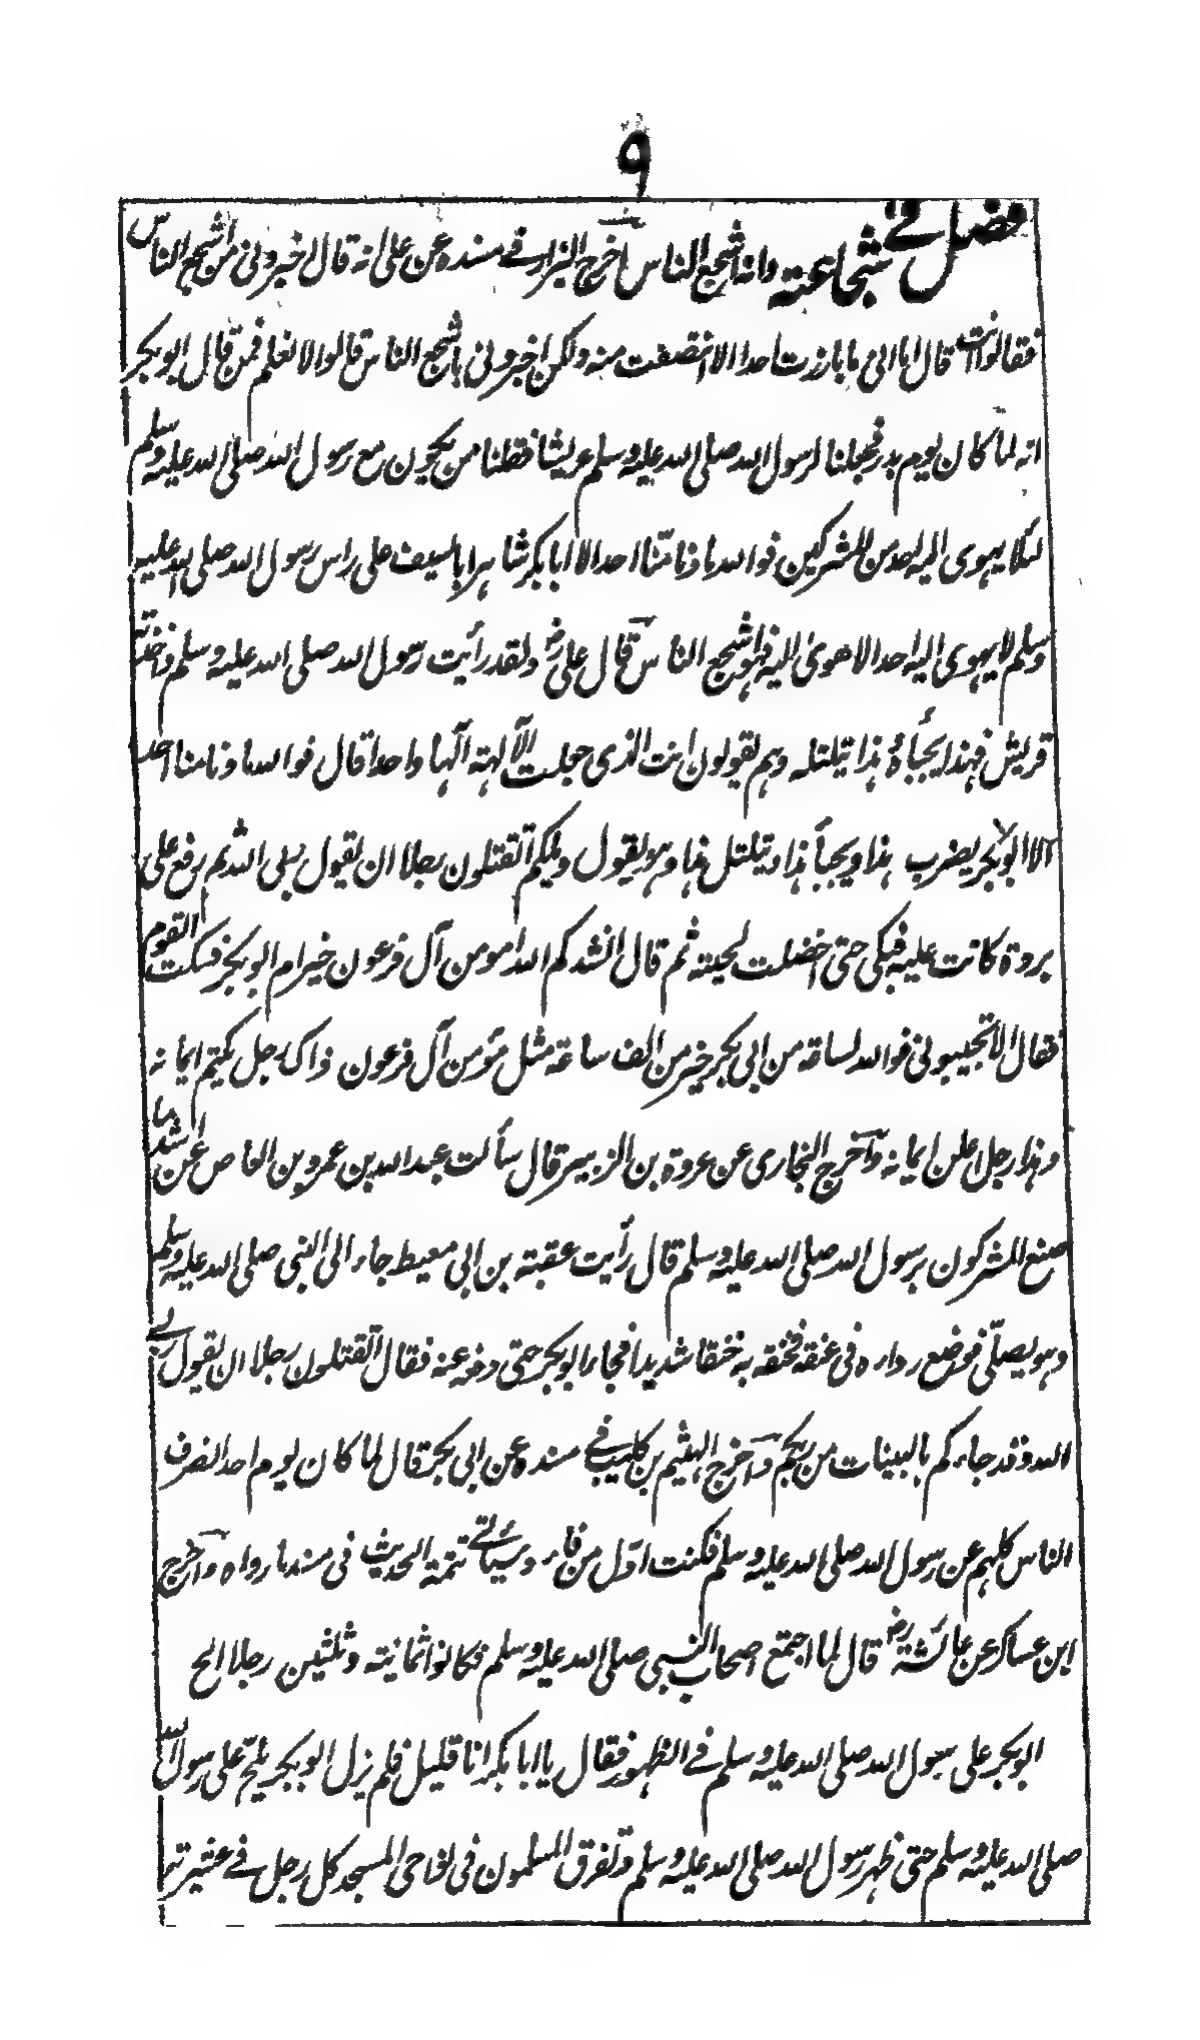 ٩
فصل في شجاعته وانه اشجع الناس اخرج البزار في مسنده عن علي انه قال اخبروني من اشجع الناس
فقالوا انت قال اما اني ما بارزت احدا الا انتصفت منه ولكن اخبروني باشجع الناس قالوا لا نعلم فمن قال ابو بكر
انه لما كان يوم بدر فجعلنا لرسول الله صلى الله عليه وسلم عريشا فقلنا من يكون مع رسول الله صلى الله عليه وسلم
لئلا يهوى اليه احد من المشركين فوالله ما دنا منا احد الا ابا بكر شاهرا بالسيف على راس رسول الله صلى الله عليه
وسلم لا يهوى اليه احد الا هوى اليه فهو اشجع الناس قال علي رض ولقد رأيت رسول الله صلى الله عليه وسلم واخذته
قريش فهذا يجبأه وهذا يتلتله وهم يقولون انت الذى جعلت الآلهة الٓها واحدا قال فوالله ما دنا منا احد
الا ابو بكر يضرب هذا ويجبأ هذا ويتلتل هذا وهو يقول ويلكم أتقتلون رجلا ان يقول ربى الله ثم رفع على
بردة كانت عليه فبكى حتى اخضلت لحيته ثم قال انشدكم الله امومن آل فرعون خير ام ابو بكر فسكت القوم
فقال الا تجيبونى فوالله لساعة من ابى بكر خير من الف ساعة مثل مؤمن آل فرعون ذاك رجل يكتم ايمانه
وهذا رجل اعلن ايمانه واخرج البخارى عن عروة بن الزبير قال سألت عبد الله بن عمرو بن العاص عن اشد ما
صنع المشركون برسول الله صلى الله عليه وسلم قال رأيت عقبة بن ابى معيط جاء الى النبى صلى الله عليه وسلم
وهو يصلّى فوضع رداءه فى عنقه فخنقه به خنقا شديدا فجاء ابو بكر حتى دفعه عنه فقال أتقتلون رجلا ان يقول ربى
الله وقد جاءكم بالبينات من ربكم واخرج الهيثم بن كليب في مسنده عن ابى بكر قال لما كان يوم احد انصرف
الناس كلهم عن رسول الله صلى الله عليه وسلم فكنت اوّل من فاء وسيأتي تتمة الحديث فى مسند ما رواه واخرج
ابن عساكر عن عائشة رض قال لما اجتمع اصحاب النبى صلى الله عليه وسلم فكانوا ثمانية وثلثين رجلا الح
ابو بكر على رسول الله صلى الله عليه وسلم في الظهور فقال يا ابا بكر انا قليل فلم يزل ابو بكر يلحّ على رسول الله
صلى الله عليه وسلم حتى ظهر رسول الله صلى الله عليه وسلم وتفرق المسلمون فى نواحى المسجد كل رجل في عشيرته